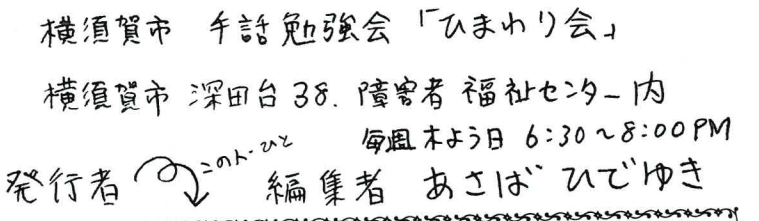 横須賀市 手話勉強会「ひまわり会」
横須賀市 深田台38. 障害者福祉センター内
毎週木よう日 6:30~8:00PM
このト-ひと
発行者 編集者 あさば ひでゆき